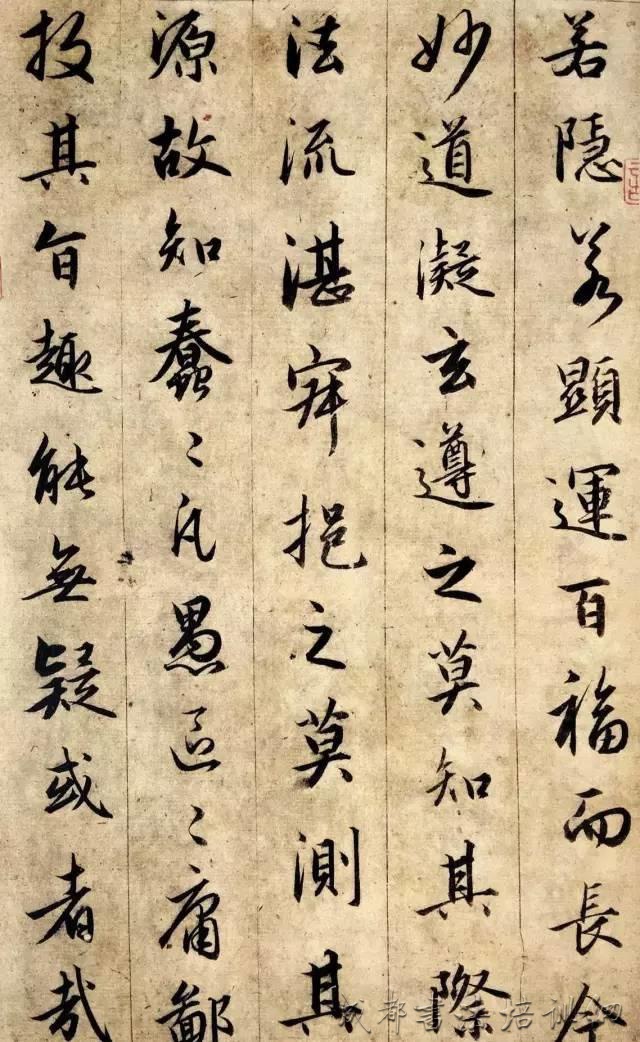 若隱若顯運百福而長今
妙道凝玄遵之莫知其際
法流湛寂挹之莫測其
源故知蠢〻凡愚區〻庸鄙
投其旨趣能無疑或者哉
成都書法培训网